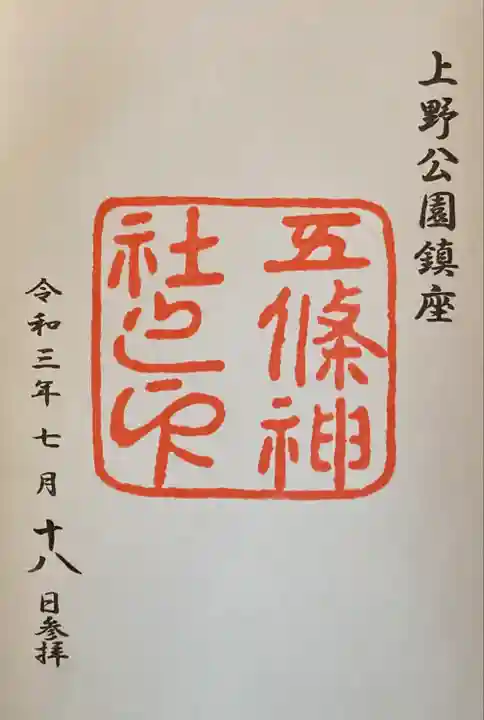 上野公園鎮座
五條神
社之印
令和三年七月十八日参拝